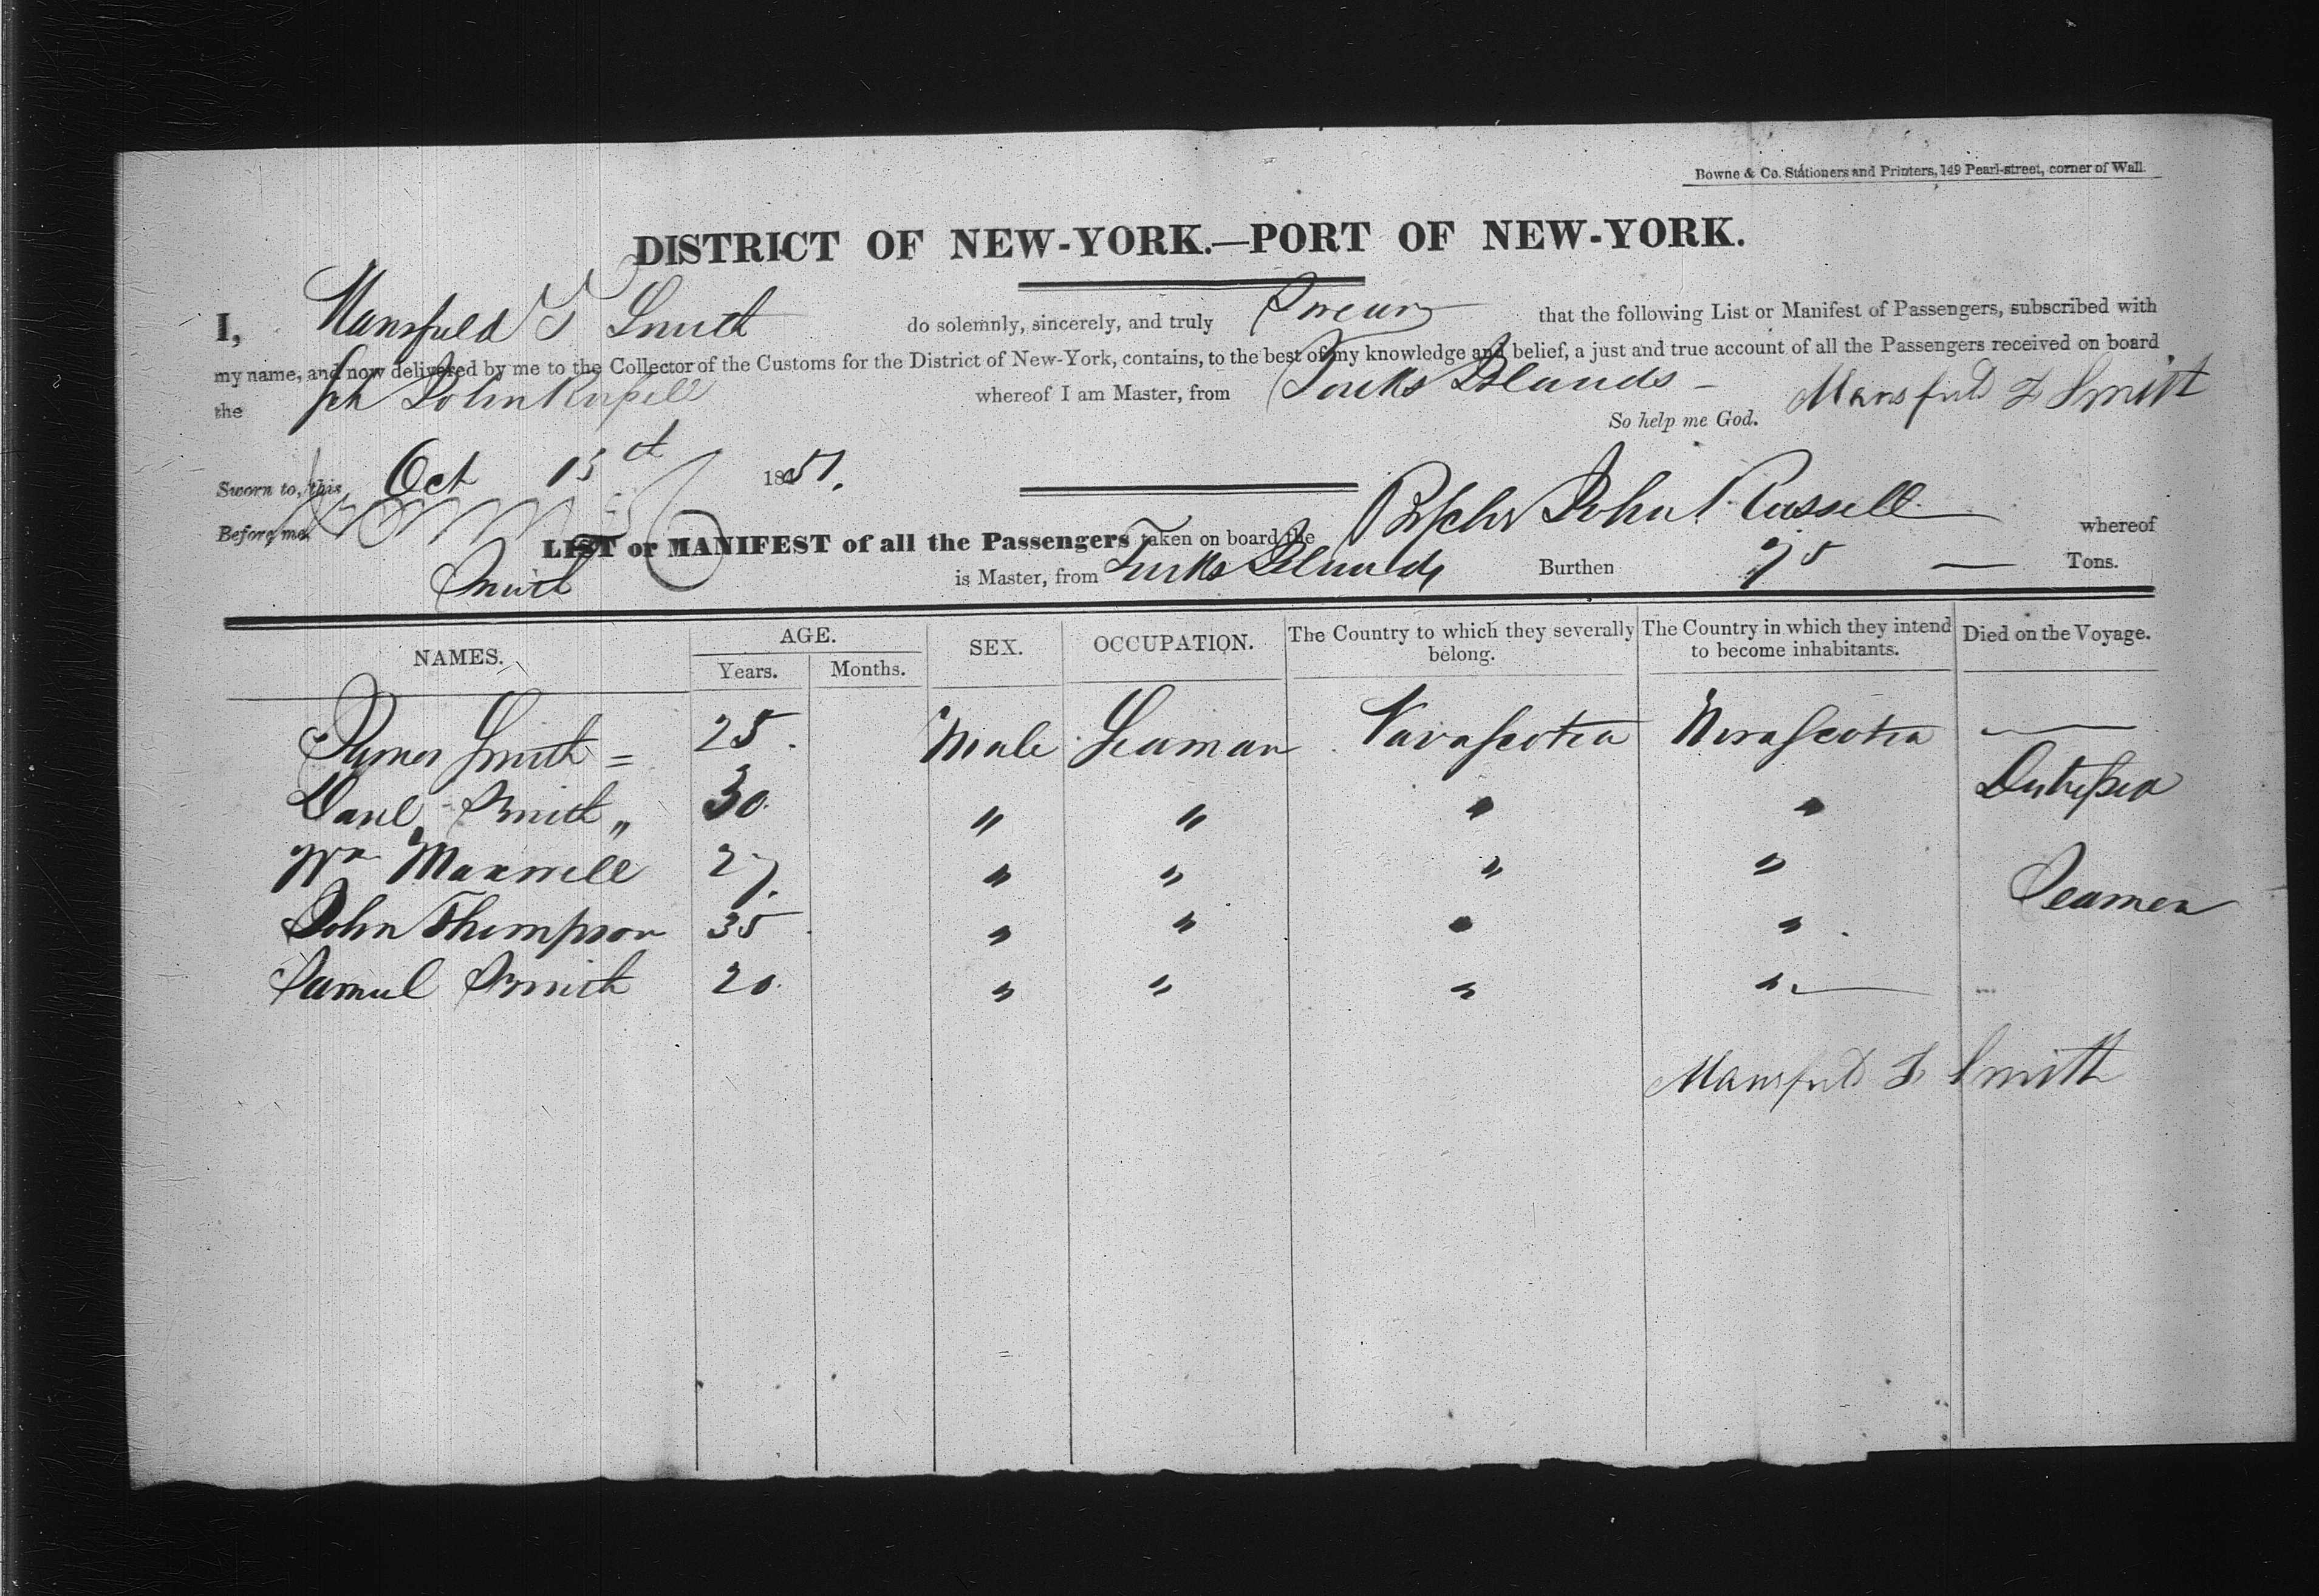 Bowne & Co. Stationers and Printers, 149 Pearl-street, corner of Wall.
DISTRICT OF NEW-YORK.—PORT OF NEW-YORK.
I, Mansfield T Smith do solemnly, sincerely, and truly Swear that the following List or Manifest of Passengers, subscribed with
my name, and now delivered by me to the Collector of the Customs for the District of New-York, contains, to the best of my knowledge and belief, a just and true account of all the Passengers received on board
the Sch John Russell whereof I am Master, from Turks Islands — Mansfield T Smith
So help me God.
Sworn to, this Oct 15th 1851.
Before me,
LIST or MANIFEST of all the Passengers taken on board the Br Schr John Russell whereof
Smith is Master, from Turks Islands Burthen 95 — Tons.
NAMES. AGE. SEX. OCCUPATION. The Country to which they severally belong. The Country in which they intend to become inhabitants. Died on the Voyage.
Years. Months.
James Smith = 25. Male Seaman Novascotia Novascotia —
Danl Smith „ 30. " " " " Distressed
Wm Maxwell 27. " " " "
John Thompson 35 " " " " Seamen
Samul Smith 20. " " " "
Mansfield T Smith